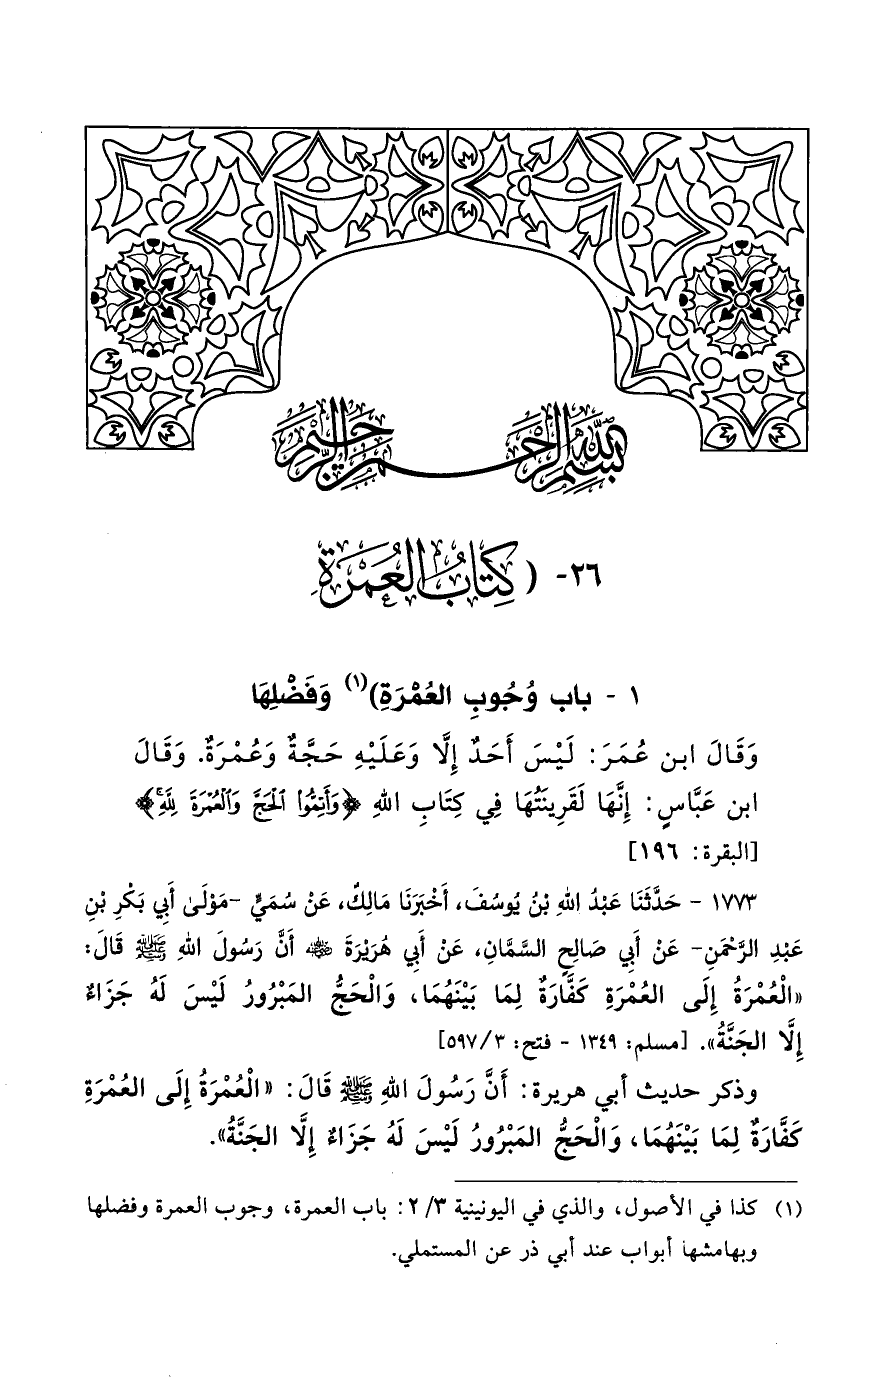 بسم الله الرحمن الرحيم
٢٦- (كِتَابُ العُمْرَةِ
١ - باب وُجُوبِ العُمْرَةِ)(١) وَفَضْلِهَا
وَقَالَ ابن عُمَرَ: لَيْسَ أَحَدٌ إِلَّا وَعَلَيْهِ حَجَّةٌ وَعُمْرَةٌ. وَقَالَ
ابن عَبَّاسٍ: إِنَّهَا لَقَرِينَتُهَا فِي كِتَابِ اللهِ ﴿وَأَتِمُّوا۟ ٱلْحَجَّ وَٱلْعُمْرَةَ لِلَّهِ﴾
[البقرة: ١٩٦]
١٧٧٣ - حَدَّثَنَا عَبْدُ اللهِ بْنُ يُوسُفَ، أَخْبَرَنَا مَالِكٌ، عَنْ سُمَيٍّ -مَوْلَىٰ أَبِي بَكْرِ بْنِ
عَبْدِ الرَّحْمَنِ- عَنْ أَبِي صَالِحٍ السَّمَّانِ، عَنْ أَبِي هُرَيْرَةَ رضي الله عنه أَنَّ رَسُولَ اللهِ ﷺ قَالَ:
«الْعُمْرَةُ إِلَى العُمْرَةِ كَفَّارَةٌ لِمَا بَيْنَهُمَا، وَالْحَجُّ المَبْرُورُ لَيْسَ لَهُ جَزَاءٌ
إِلَّا الجَنَّةُ». [مسلم: ١٣٤٩ - فتح: ٣/ ٥٩٧]
وذكر حديث أبي هريرة: أَنَّ رَسُولَ اللهِ ﷺ قَالَ: «الْعُمْرَةُ إِلَى العُمْرَةِ
كَفَّارَةٌ لِمَا بَيْنَهُمَا، وَالْحَجُّ المَبْرُورُ لَيْسَ لَهُ جَزَاءٌ إِلَّا الجَنَّةُ».
(١) كذا في الأصول، والذي في اليونينية ٣/ ٢: باب العمرة، وجوب العمرة وفضلها
وبهامشها أبواب عند أبي ذر عن المستملي.